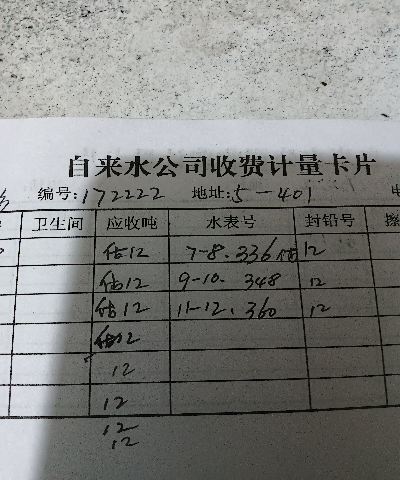 自来水公司收费计量卡片
编号:172222 地址:5-401 电
卫生间 应收吨 水表号 封铅号 擦
估12 7-8.336估 12
估12 9-10. 348 12
估12 11-12. 360 12
估12
12
12
12
12